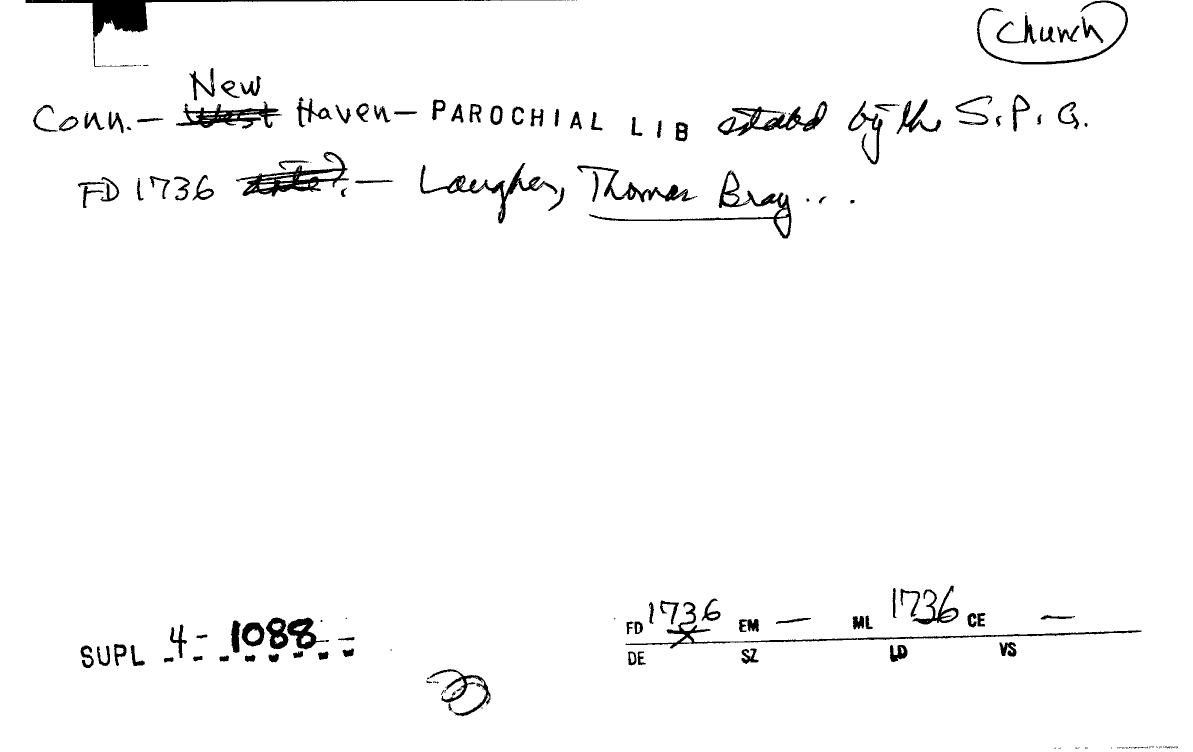 Church
New
Conn.— West Haven— PAROCHIAL LIB estabd by the S.P.G.
FD 1736 date?.— Laugher, Thomas Bray...
SUPL 4-1088
FD 1736 EM — ML 1736 CE —
DE SZ LD VS